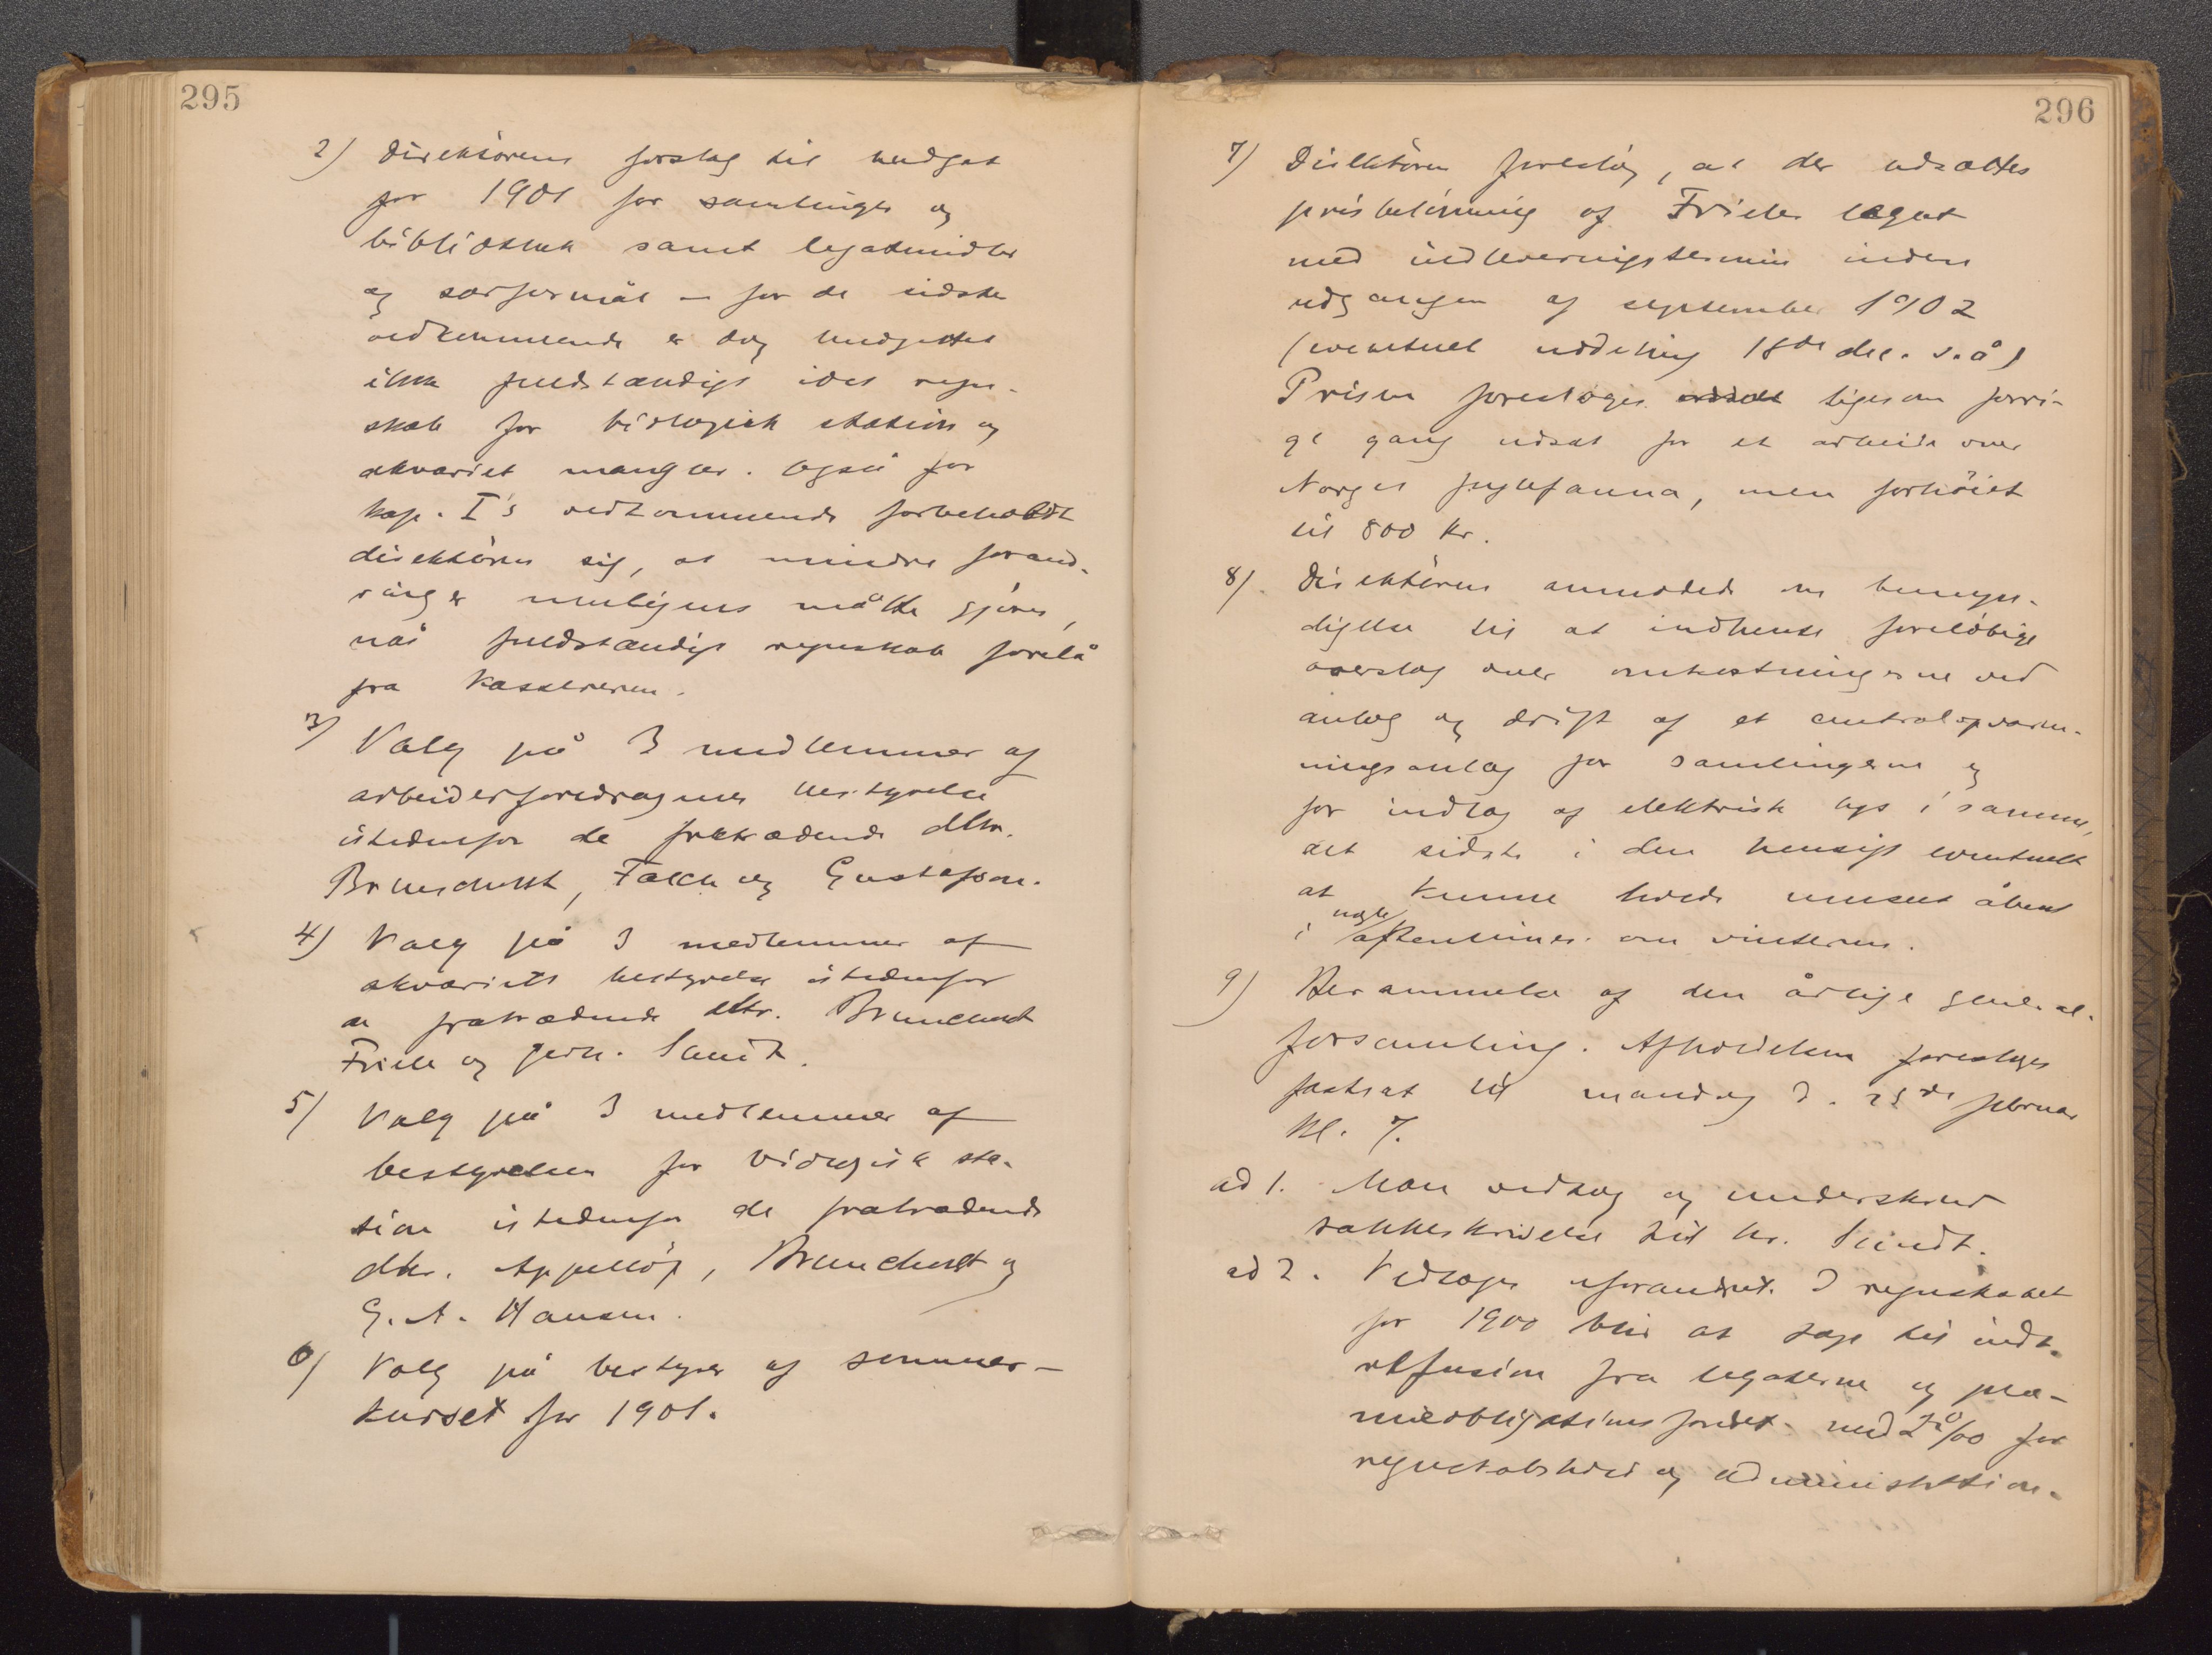 295
2) Direktörens forslag til budget
for 1901 for samlinger og
bibliothek samt legatmidler
og særformål – for de sidste
vedkommende er dog budgettet
ikke fuldstændigt idet regn-
skab for biologisk station og
akvariet mangler. Også for
kap. I's vedkommende forbeholdt
direktören sig, at mindre forand-
ringer muligens måtte gjöres,
når fuldstændigt regnskab forelå
fra kassereren.
3) Valg på 3 medlemmer af
arbeiderforedragenes bestyrelse
istedenfor de fratrædende dhr.
Brunchorst, Falch og Gustafson.
4) Valg på 3 medlemmer af
akvariets bestyrelse istedenfor
de fratrædende dhr. Brunchorst
Friele og Joch. Sundt.
5) Valg på 3 medlemmer af
bestyrelsen for biologisk sta-
tion istedenfor de fratrædende
dhr. Appellöf, Brunchorst og
G. A. Hansen.
6) Valg på bestyrer af sommer-
kurset for 1901.
296
7) Direktören foreslog, at der udsættes
prisbelönning af Frieles legat
med indleveringstermin inden
udgangen af september 1902
(eventuel uddeling 18de dec. s. å)
Prisen foreslåges ligesom forri-
ge gang udsat for et arbeide over
Norges fuglefauna, men forhöiet
til 800 kr.
8) Direktören anmodede om bemyn-
digelse til at indhente forelöbige
overslag over omkostningerne ved
anlæg og drift af et centralopvarm-
ningsanlæg for samlingerne og
for indlæg af elektrisk lys i samme,
det sidste i den hensigt eventuelt
at kunne holde museet åbent
i nogle aftentimer om vinteren.
9) Berammelse af den årlige general-
forsamling. Afholdelsen foreslåges
fastsat til mandag d. 25de februar
kl. 7.
ad 1. Man vedtog og underskrev
takkeskrivelse til hr. Sundt.
ad 2. Vedtoges uforandret. I regnskabet
for 1900 blir at tage til indt.
refusion fra legaterne og præ-
mieobligationsfondet med 2 0/00 for
regnskabshold og administration.